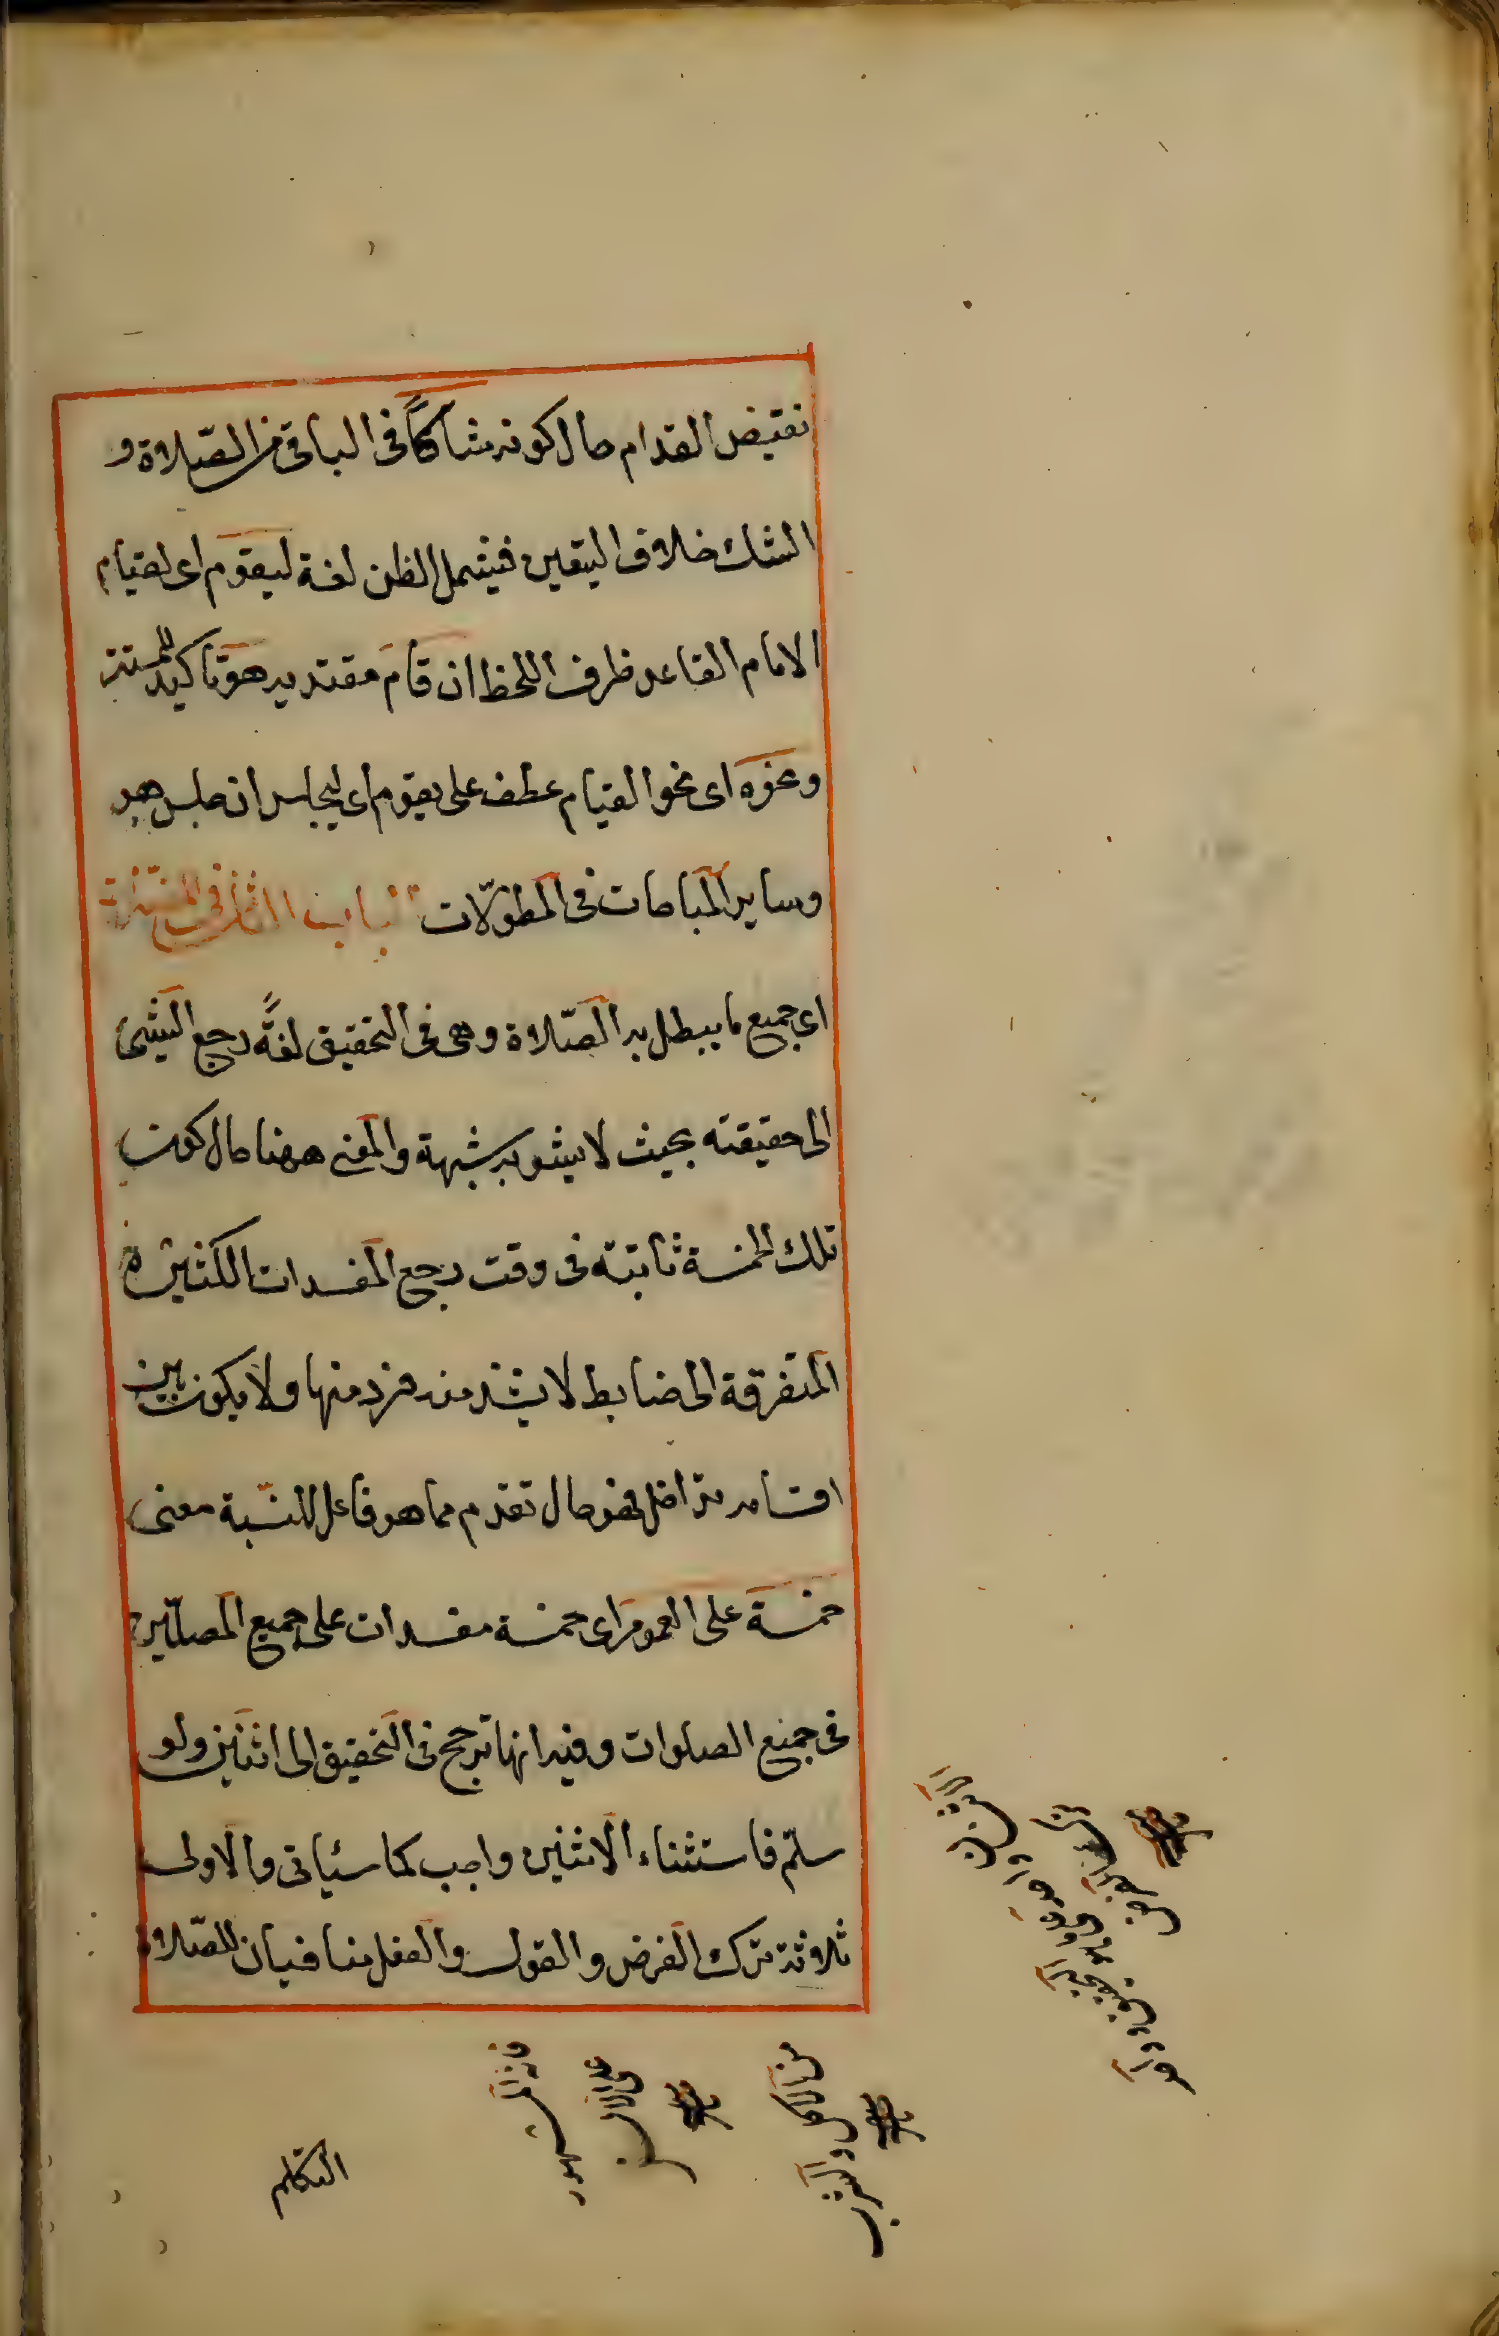 نقيض القدام حال كونه شاكًّا فى الباقى من الصّلاة و
الشك خلاف اليقين فيشمل الظن لغة ليقوم اى لقيام
الامام القاعد ظرف اللحظ ان قام مقتديه هو تاكيد للمستتر
ونحوه اى نحو القيام عطف على يقوم اى ليجلس ان جلس هو
وساير المباحات فى المطوّلات الباب الثانى فى
اى جميع ما يبطل به الصّلاة وهى فى التحقيق لغةً رجع الشيئ
الى حقيقته بحيث لا يشوبه شبهة والمعنى ههنا حال كون
تلك الخمسة ثابتة فى وقت رجع المفسدات الكثيرة
المتفرقة الى ضابط لا يشذ منه فرد منها ولا يكون بين
اقسامه تداخل فهو حال تقدم مما هو فاعل للنسبة معنى
خمسة على العموم اى خمسة مفسدات على جميع المصلّين
فى جميع الصلوات وفيه انها ترجع فى التحقيق الى اثنين ولو
سلّم فاستثناء الاثنين واجب كما سيأتى والاولى
ثلاثة ترك الفرض والقول والفعل منافيان للصّلاة
من الاكل والشرب
التكلم